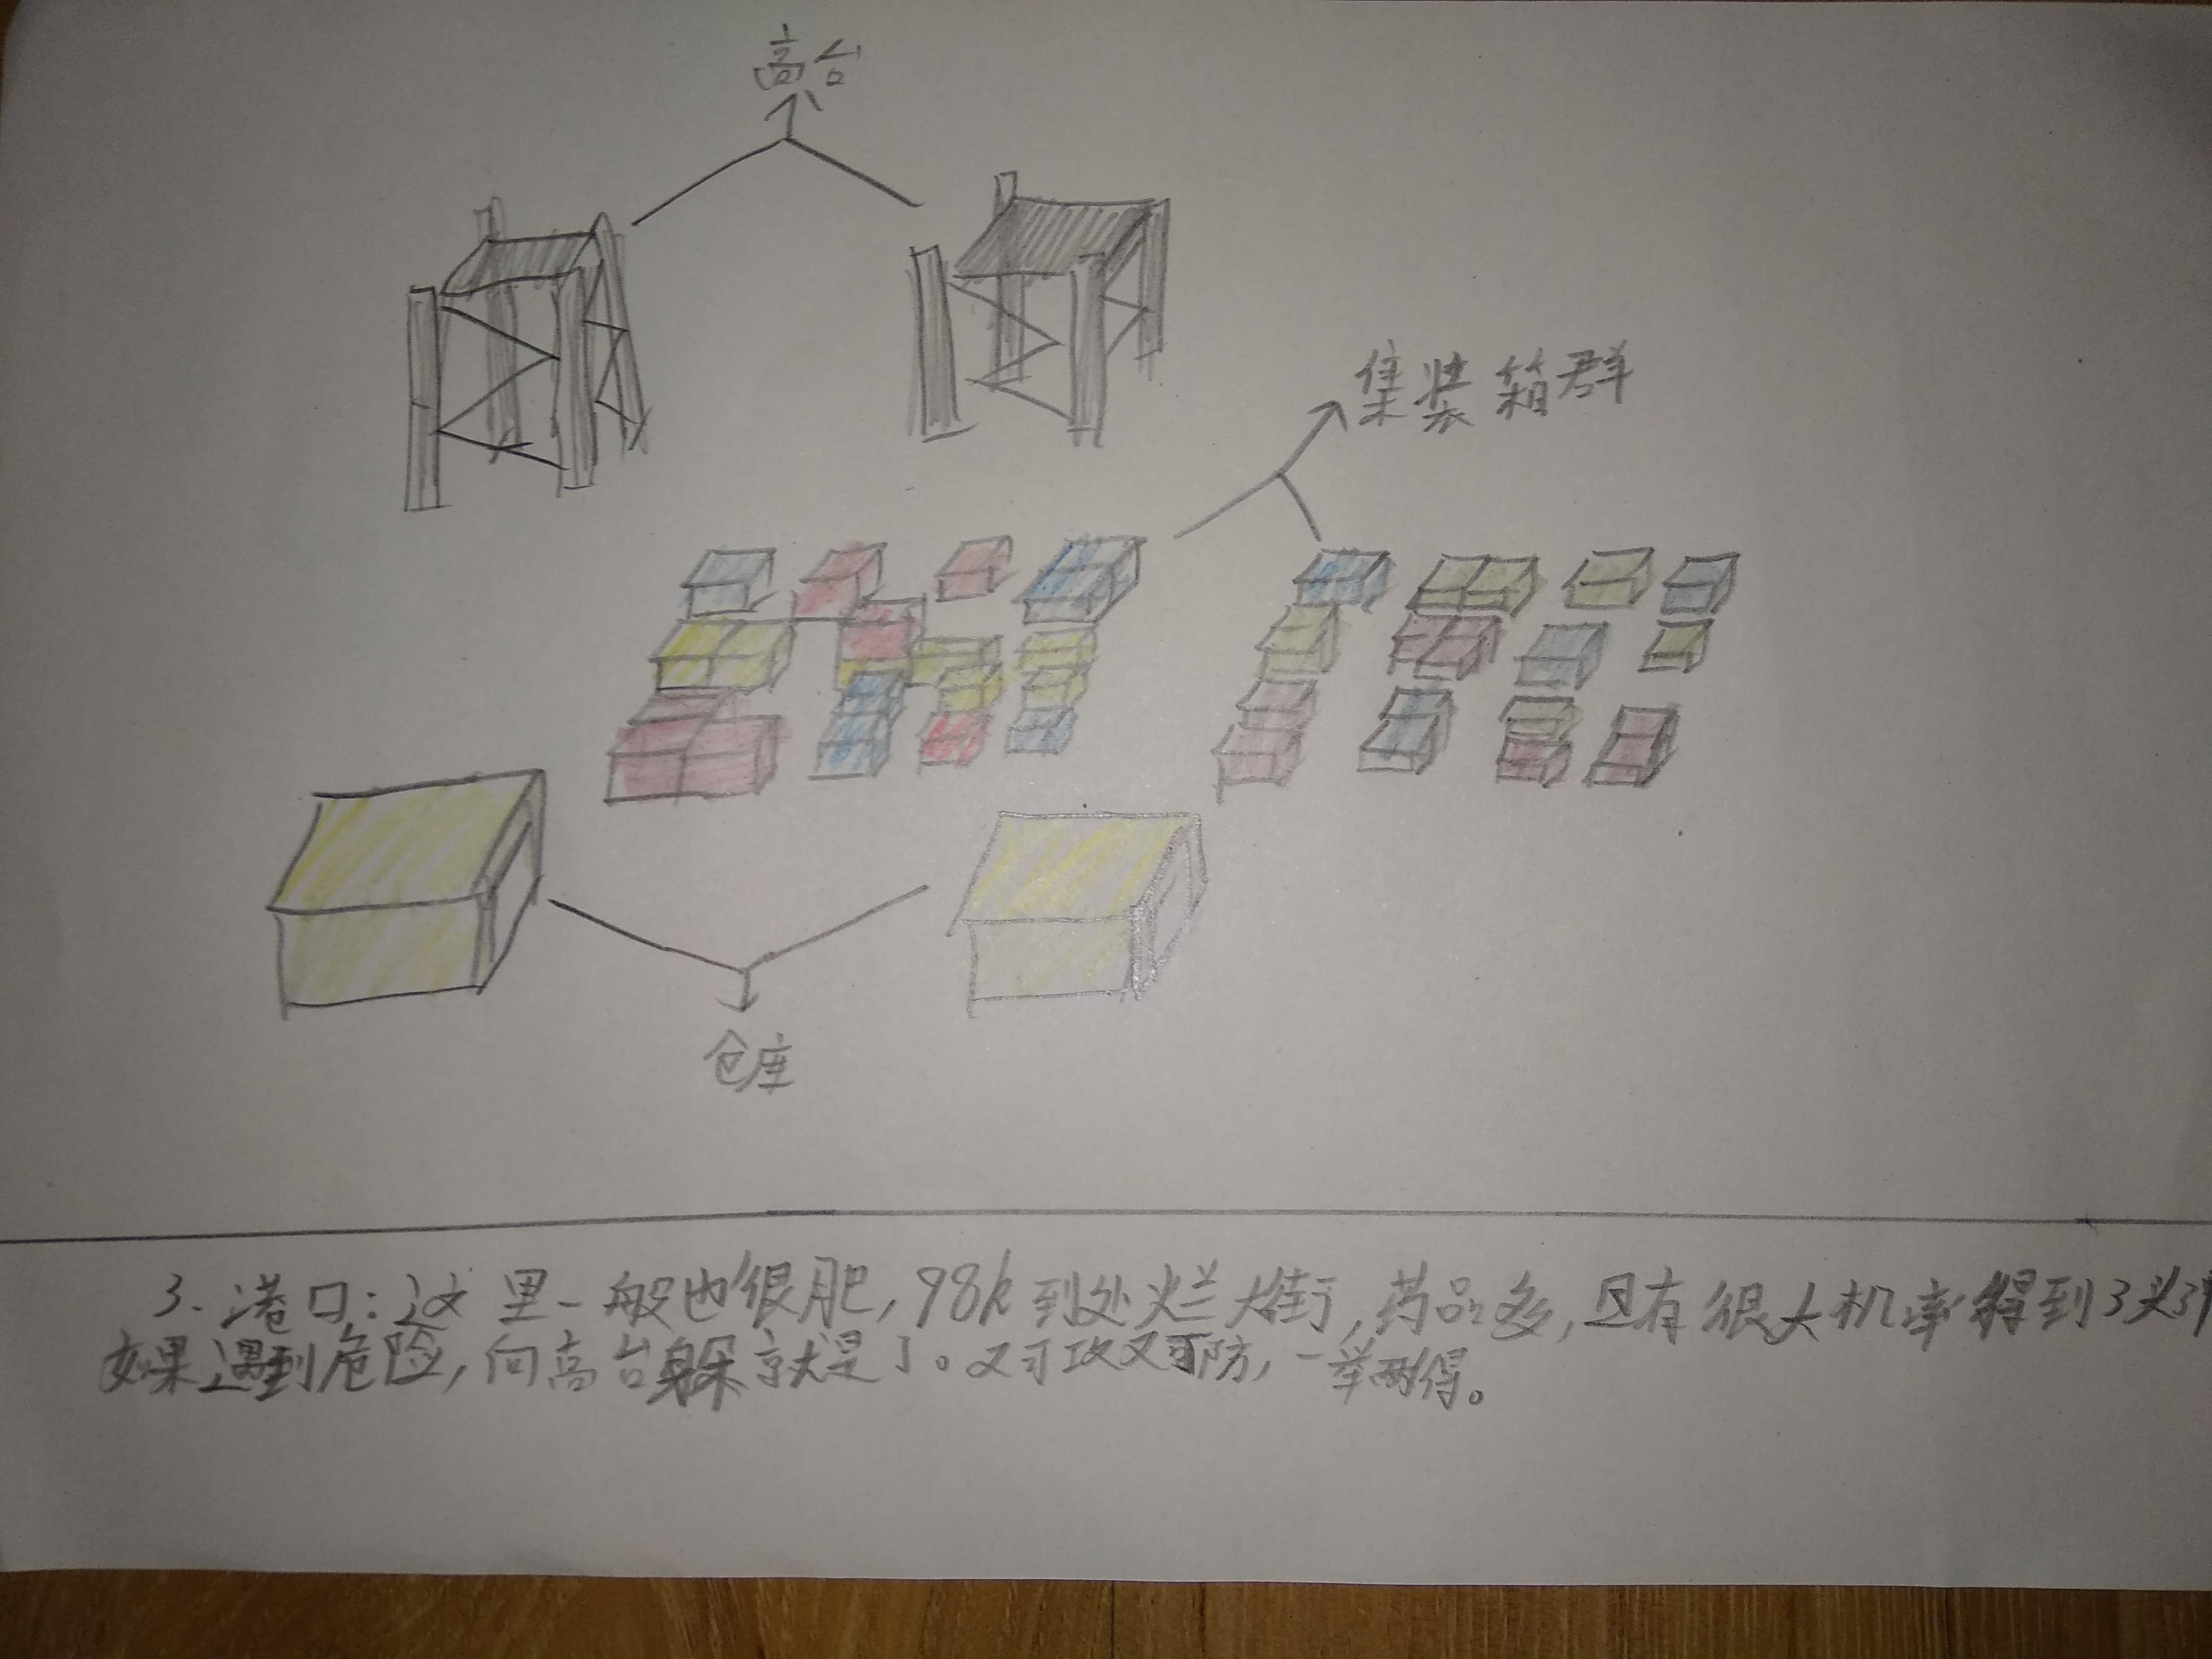 高台
集装箱群
仓库
3.港口:这里一般也很肥,98k到处烂大街,药品多,且有很大机率得到3头3
如果遇到危险,向高台躲就是了。又可攻又可防,一举两得。